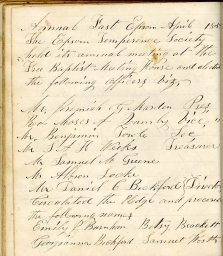 Annual Fast Epsom April 185
The Epsom Temperance Society
held its annual meeting at the
Free Baptist Meeting House and elected
the following officers viz,
Mr. Jeremiah G Marden Pres
Rev Moses A Quimby Vice "
Mr. Benjamin Towle Sec
Mr. J. H Weeks Treasurer
Mr Samuel M Greene
Mr Albion Locke
Mr Daniel C Bickford
Circulated the Pledge and procured
the following names
Emily P Burnham Betsy Brackett
Georgianna Bickford Samuel